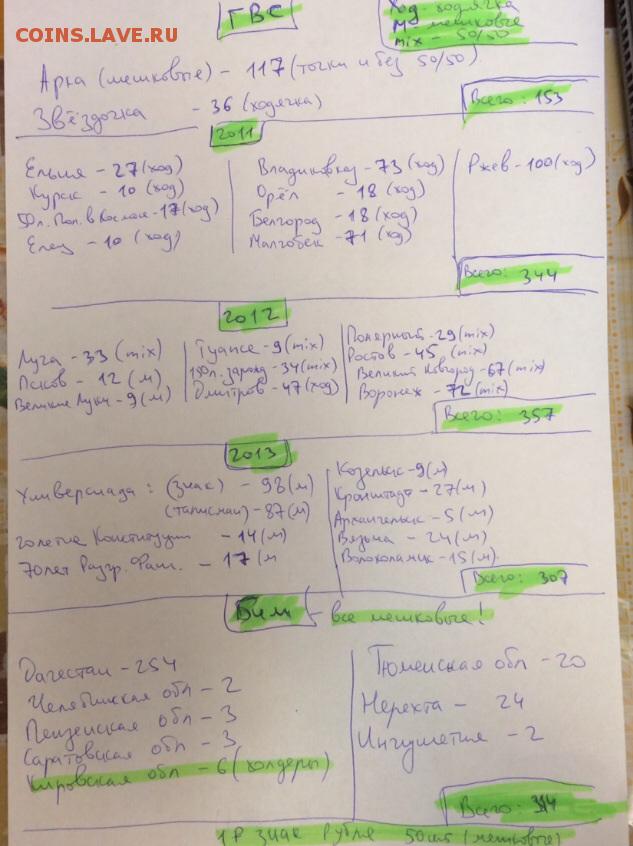 COINS.LAVE.RU
ГВС
Ход - ходячка
М - мешковые
mix - 50/50
Арка (мешковые) - 117 (точки и без 50/50)
Звёздочка - 36 (ходячка)
Всего: 153
2011
Ельня - 27 (ход)
Курск - 10 (ход)
50л. Пол. в Космос - 17 (ход)
Елец - 10 (ход)
Владикавказ - 73 (ход)
Орёл - 18 (ход)
Белгород - 18 (ход)
Малгобек - 71 (ход)
Ржев - 100 (ход)
Всего: 344
2012
Луга - 33 (mix)
Псков - 12 (м)
Великие Луки - 9 (м)
Туапсе - 9 (mix)
1150л. зарожд - 34 (mix)
Дмитров - 47 (ход)
Полярный - 29 (mix)
Ростов - 45 (mix)
Великий Новгород - 67 (mix)
Воронеж - 72 (mix)
Всего: 357
2013
Универсиада: (знак) - 98 (м)
(талисман) - 87 (м)
20летие Конституции - 14 (м)
70лет Разгр. Фаш. - 17 (м
Козельск - 9 (м)
Кронштадт - 27 (м)
Архангельск - 5 (м)
Вязьма - 24 (м)
Волоколамск - 15 (м)
Всего: 307
Бим - все мешковые!
Дагестан - 254
Челябинская обл - 2
Пензенская обл - 3
Саратовская обл - 3
Кировская обл - 6 (холдеры)
Тюменская обл - 20
Нерехта - 24
Ингушетия - 2
Всего: 314
1 Р знак рубля 50шт (мешковые)